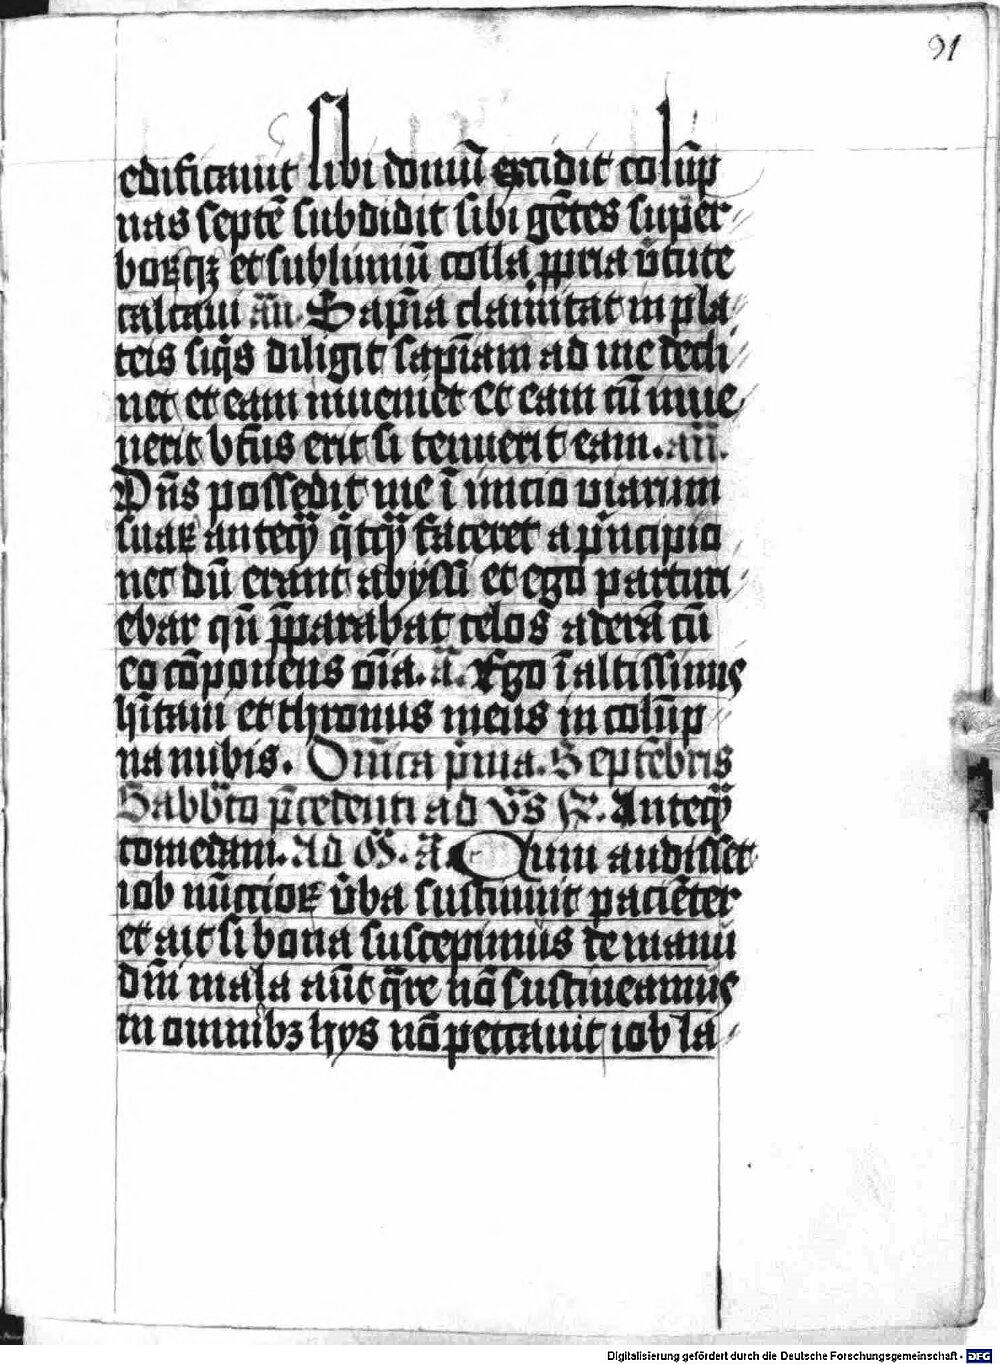 91
edificauit sibi domū excidit colūp
nas septē subdidit sibi gētes super
borꝝqꝫ et sublimiū colla ꝓpria v̄tute
calcaui añ. Sapīa clamitat in pla
teis siq̄s diligit sapīam ad me decli
net et eam inueniet et eam cū inue
nerit btūs erit si tenuerit eam. añ.
Dn̄s possedit me ī inicio viarum
suaꝝ anteq̄ꝫ q̄cq̄ꝫ faceret a pⁱncipio
nec dū erant abyssi et ego parturi
ebar qn̄ p̄parabat celos aderā cū
eo cōponens oīa. a̅. Ego ī altissimis
hītaui et thronus meus in colūp
na nubis. Dn̄ica pⁱma. Septēbris
Sabbͣto p̄cedenti ad v̄s R̸. Anteq̄ꝫ
comedam. Ad M̄. A̅. Qum audisset
iob nūccioꝝ v̄ba sustinuit paciēter
et ait si bona suscepimus de manu
dn̄i mala aūt q̄re nō sustineamus
in omnibꝫ hys nō peccauit iob la
Digitalisierung gefördert durch die Deutsche Forschungsgemeinschaft - DFG